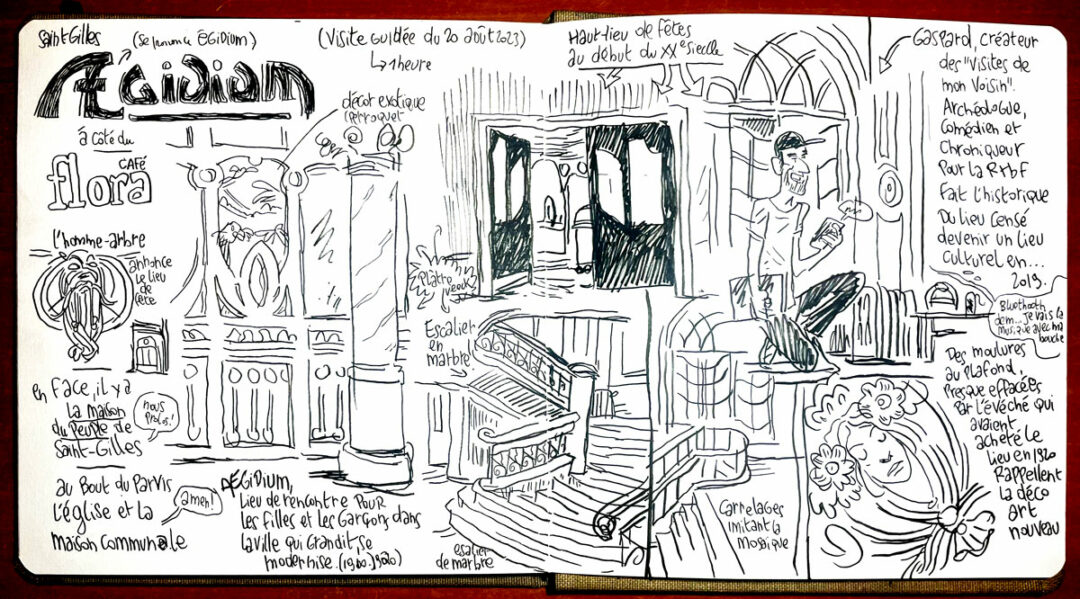 Saint Gilles
(se prononce ÉGIDIUM)
ÆGIDIUM
(Visite Guidée du 20 août 2023)
↳ 1 heure
à côté du
CAFÉ
flora
l'homme-arbre
annonce
le lieu
de
fête
en face, il y a
la maison
du Peuple de
Saint-Gilles
nous
prolos!
au Bout du Parvis
l'église et la
maison communale
amen!
décor exotique
perroquet
Platre
Escalier
en
marbre
ÆGIDIUM,
Lieu de rencontre POUR
les filles et les Garçons dans
la ville qui Grandit, se
modernise. (1900-1920)
escalier
de marbre
Haut lieu de fêtes
au début du XXe siècle
Gaspard, créateur
des "Visites de
mon Voisin".
Archéologue,
Comédien et
Chroniqueur
Pour la Rtbf
Fait l'historique
Du lieu censé
devenir un lieu
culturel en...
2019.
Bluethooth
dem... je vais la
musique avec ma
bouche
Des moulures
au plafond,
Presque effacées
Par l'évêché qui
avaient
acheté le
Lieu en 1920
Rappellent
la déco
art
nouveau
Carrelages
imitant la
mosaïque